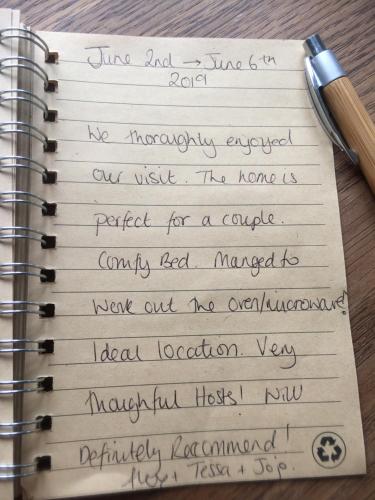 June 2nd → June 6th
2019
We thoroughly enjoyed
our visit. The home is
perfect for a couple.
Comfy Bed. Manged to
Work out the oven/microwave!
Ideal location. Very
thoughful Hosts! Will
Definitely Reccmmend!
+ Tessa + Jojo.